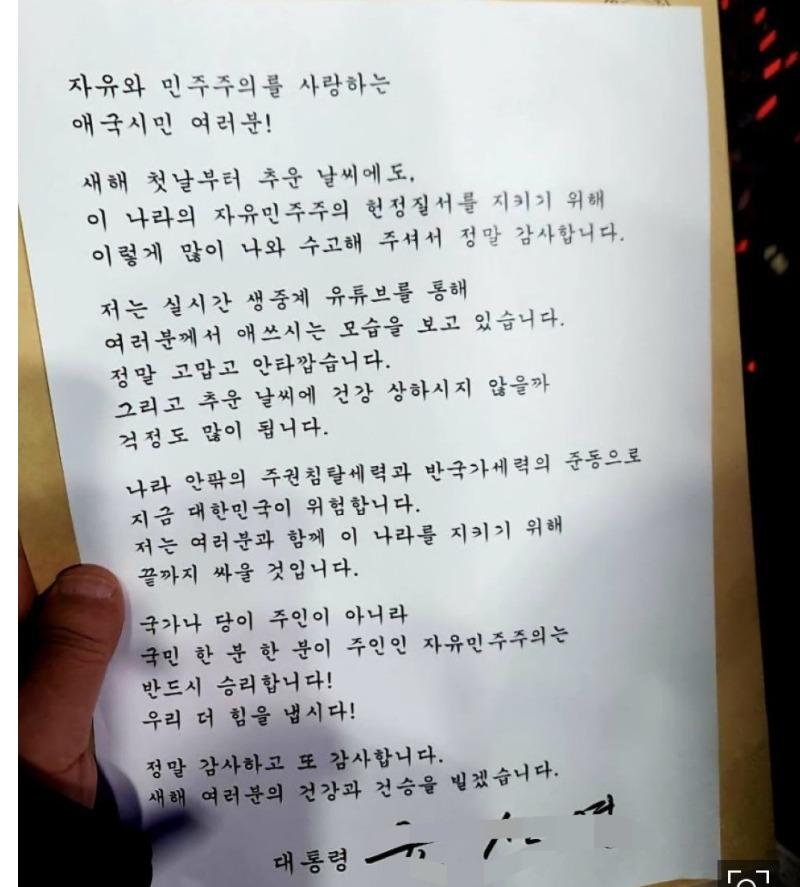 자유와 민주주의를 사랑하는
애국시민 여러분!
새해 첫날부터 추운 날씨에도,
이 나라의 자유민주주의 헌정질서를 지키기 위해
이렇게 많이 나와 수고해 주셔서 정말 감사합니다.
저는 실시간 생중계 유튜브를 통해
여러분께서 애쓰시는 모습을 보고 있습니다.
정말 고맙고 안타깝습니다.
그리고 추운 날씨에 건강 상하시지 않을까
걱정도 많이 됩니다.
나라 안팎의 주권침탈세력과 반국가세력의 준동으로
지금 대한민국이 위험합니다.
저는 여러분과 함께 이 나라를 지키기 위해
끝까지 싸울 것입니다.
국가나 당이 주인이 아니라
국민 한 분 한 분이 주인인 자유민주주의는
반드시 승리합니다!
우리 더 힘을 냅시다!
정말 감사하고 또 감사합니다.
새해 여러분의 건강과 건승을 빌겠습니다.
대통령